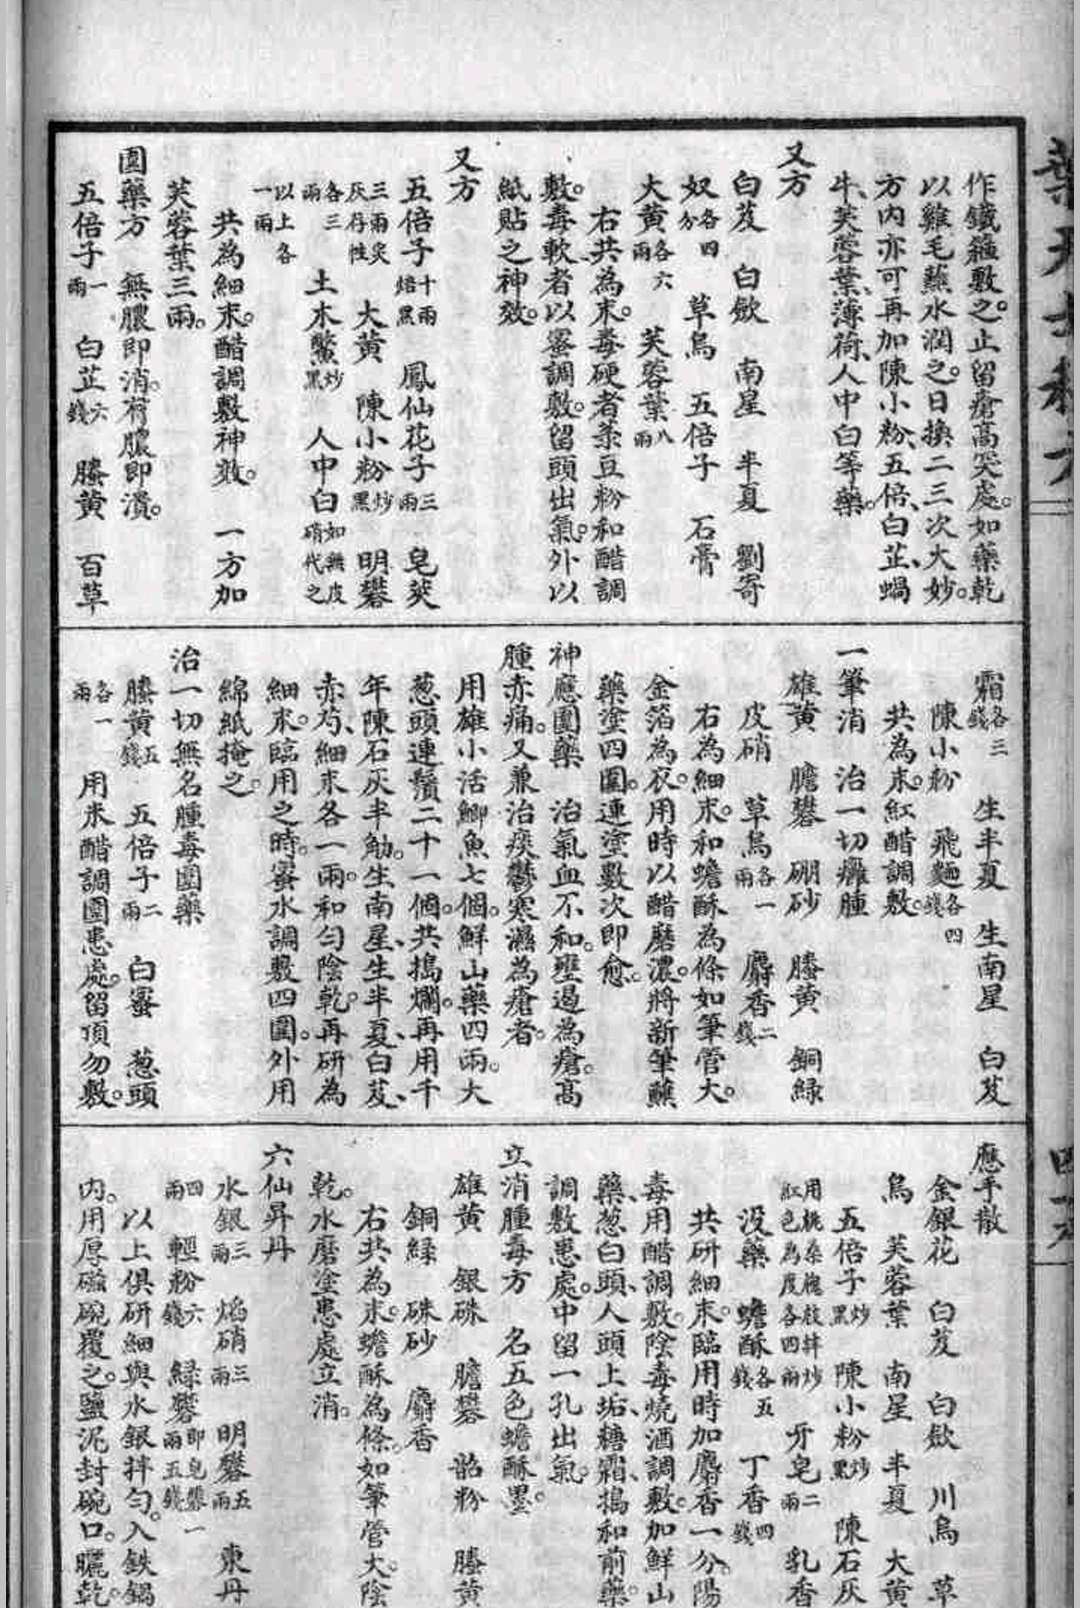 作鐵箍敷之。止留瘡高突處。如藥乾
以雞毛蘸水潤之。日換二三次大妙。
方內亦可再加陳小粉、五倍、白芷、蝸
牛、芙蓉葉、薄荷、人中白等藥。
又方
白芨　白歛　南星　半夏　劉寄
奴各四分　草烏　五倍子　石膏
大黃各六兩　芙蓉葉八兩
右共為末。毒硬者菉豆粉和醋調
敷。毒軟者以蜜調敷。留頭出氣。外以
紙貼之神效。
又方
五倍子十兩焙黑　鳳仙花子三兩　皂莢
三兩炙灰存性　大黃　陳小粉炒黑　明礬
各三兩　土木鱉炒黑　人中白如無皮硝代之
以上各一兩
共為細末。醋調敷神效。　一方加
芙蓉葉三兩。
圍藥方　無膿即消。有膿即潰。
五倍子一兩　白芷六錢　籐黃　百草
霜各三錢　生半夏　生南星　白芨
陳小粉　飛麵各四錢
共為末。紅醋調敷。
一筆消　治一切癰腫
雄黃　膽礬　硼砂　籐黃　銅綠
皮硝　草烏各一兩　麝香二錢
右為細末。和蟾酥為條如筆管大。
金箔為衣。用時以醋磨濃。將新筆蘸
藥塗四圍。連塗數次即愈。
神應圍藥　治氣血不和。壅遏為瘡。高
腫赤痛。又兼治痰鬱寒濕為瘡者。
用雄小活鯽魚七個。鮮山藥四兩。大
葱頭連鬚二十一個。共搗爛。再用千
年陳石灰半觔。生南星、生半夏、白芨、
赤芍、細末各一兩。和勻陰乾。再研為
細末。臨用之時。蜜水調敷四圍。外用
綿紙掩之。
治一切無名腫毒圍藥
籐黃五錢　五倍子二兩　白蜜　葱頭
各一兩　用米醋調圍患處。留頂勿敷。
應手散
金銀花　白芨　白歛　川烏　草
烏　芙蓉葉　南星　半夏　大黃
五倍子炒黑　陳小粉炒黑　陳石灰
用桃桑槐枝拌炒紅色為度各四兩　牙皂二兩　乳香
没藥　蟾酥各五錢　丁香四錢
共研細末。臨用時加麝香一分。陽
毒用醋調敷。陰毒燒酒調敷。加鮮山
藥、葱白頭、人頭上垢、糖霜。搗和前藥。
調敷患處。中留一孔出氣。
立消腫毒方　名五色蟾酥墨。
雄黃　銀硃　膽礬　韶粉　籐黃
銅綠　硃砂　麝香
右共為末。蟾酥為條。如筆管大。陰
乾。水磨塗患處立消。
六仙昇丹
水銀三兩　焰硝三兩　明礬五兩　東丹
四兩　輕粉六錢　綠礬即皂礬一兩五錢
以上俱研細與水銀拌勻。入鉄鍋
內。用厚磁碗覆之。鹽泥封碗口。曬乾。